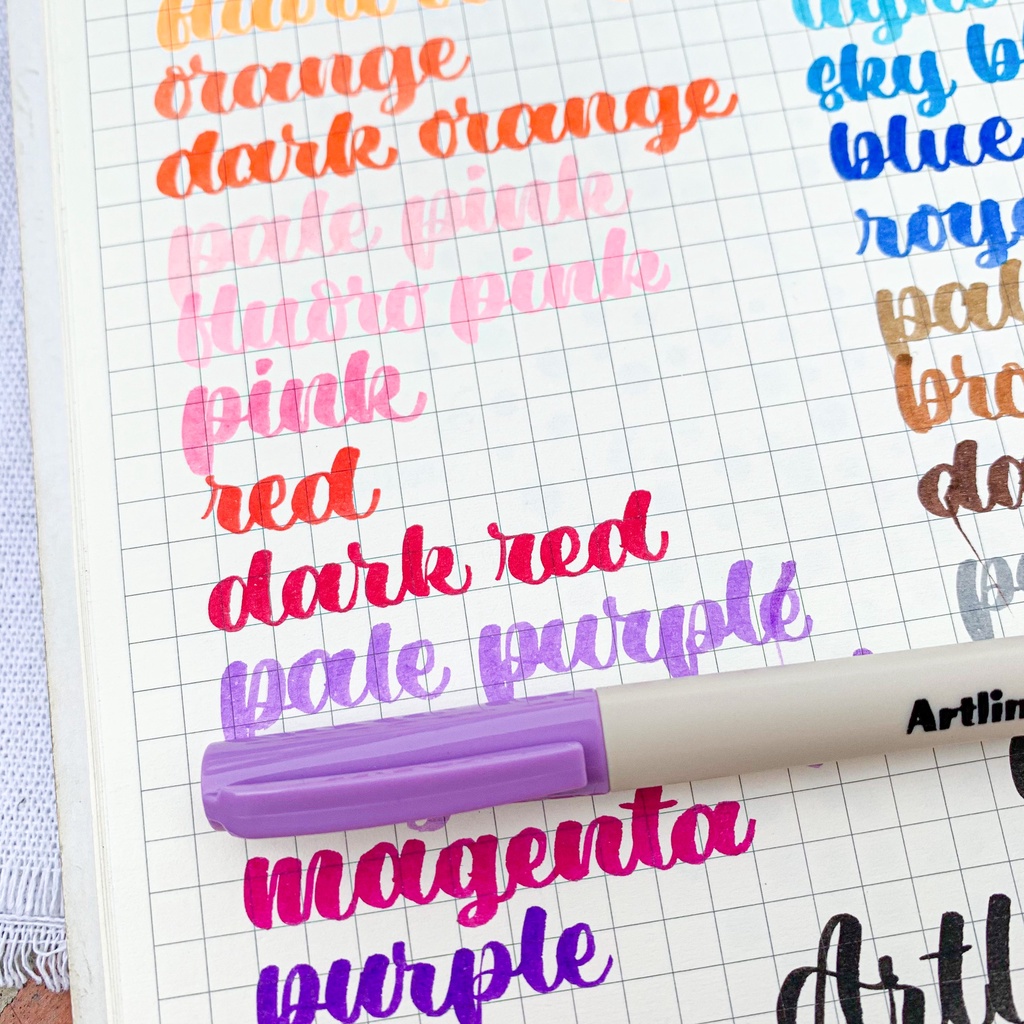 orange
dark orange
pale pink
fluoro pink
pink
red
dark red
pale purple
magenta
purple
sky
blue
Artlin